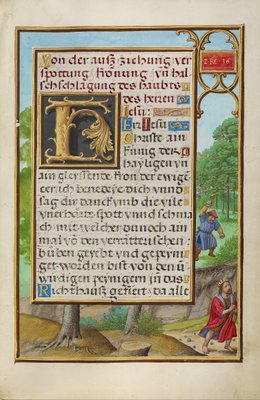 Von der ausz ziehung ver
spottung krönung vn hal
schschlagung des haubts
des herren Jesu
Hrr Jesu
Christe ain
künig der
hayligen vn
ain gleyssende kron der ewigen
ich benedeye dich vnnd
sag dir danck vmb die vile
vnerhorte spott vnnd schma
ch mit welcher du noch ain
mal vo den verräterischen
buben geeyst vnd gepeyni
get worden bist von den v
wirdigen peynigern in das
Richthausz gefiert da alle